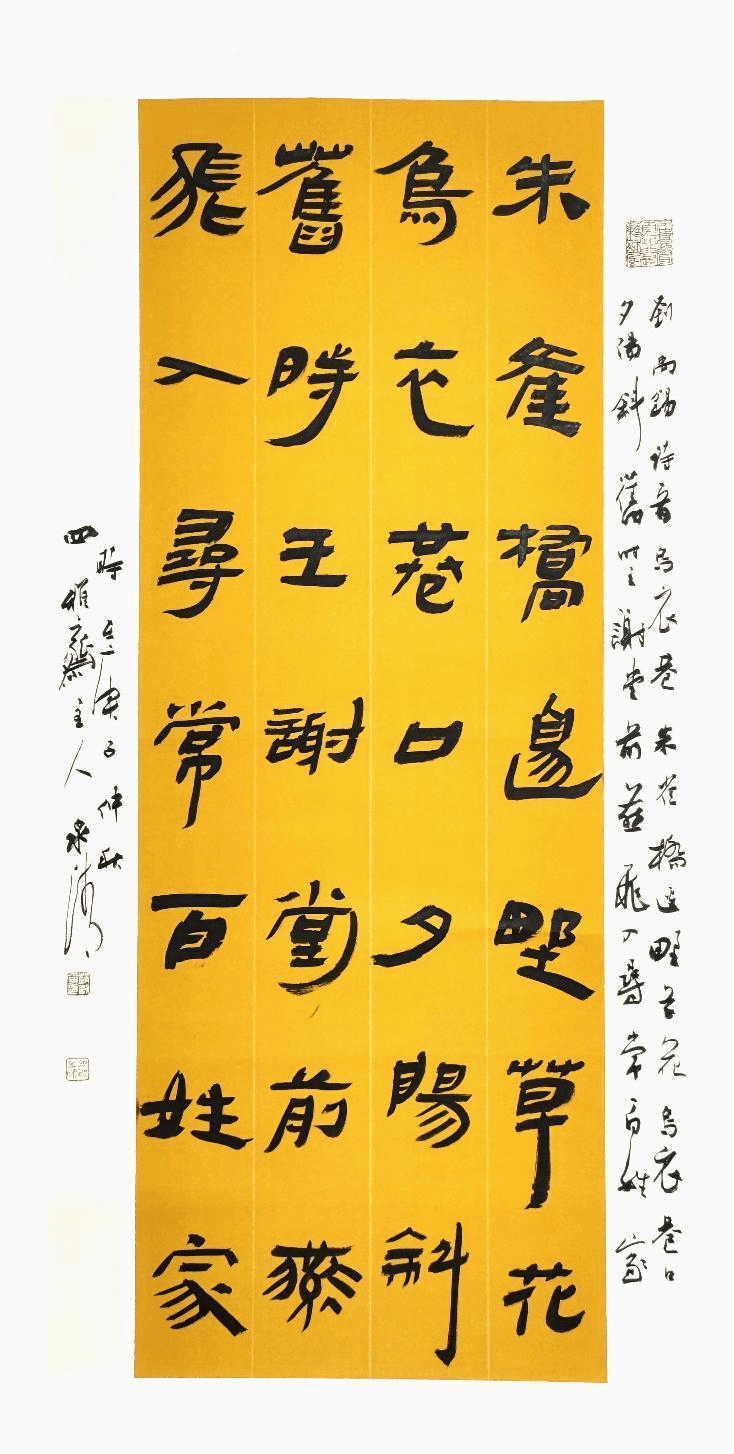 朱雀橋邊野草花
烏衣巷口夕陽斜
舊時王謝堂前燕
飛入尋常百姓家
劉禹錫詩音烏衣巷朱雀橋邊野草花烏衣巷口
夕陽斜舊時王謝堂前燕飛入尋常百姓家
時在庚子仲秋
四雅齋主人泉清